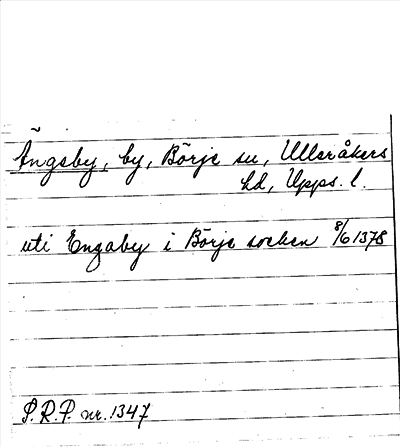 Ängeby, by, Börje sn, Ulleråkers
hd, Upps. l.
uti Engaby i Börje socken 8/6 1378
S.R.P. nr. 1347